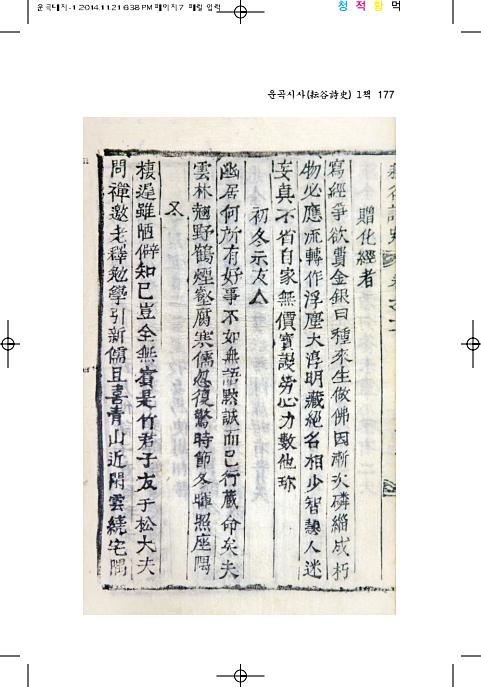 운곡내지-1 2014.11.21 6:38 PM 페이지7 매킬 입력
청 적 황 먹
운곡시사(耘谷詩史) 1책 177
贈化經者
寫經爭欲費金銀曰種來生做佛因漸次磷緇成朽
物必應流轉作浮塵大淳明藏絕名相少智愚人迷
妄真不省自家無價寶謾勞心力數他珎
初冬示友人
幽居何所有好事不如無語默誠而已行藏命矣夫
雲林翹野鶴煙壑腐寒儒忽復驚時節冬暉照座隅
又
棲遲雖陋僻知已豈全無賓是竹君子友于松大夫
問禪邀老釋勉學引新儒且喜青山近閑雲繞宅隅